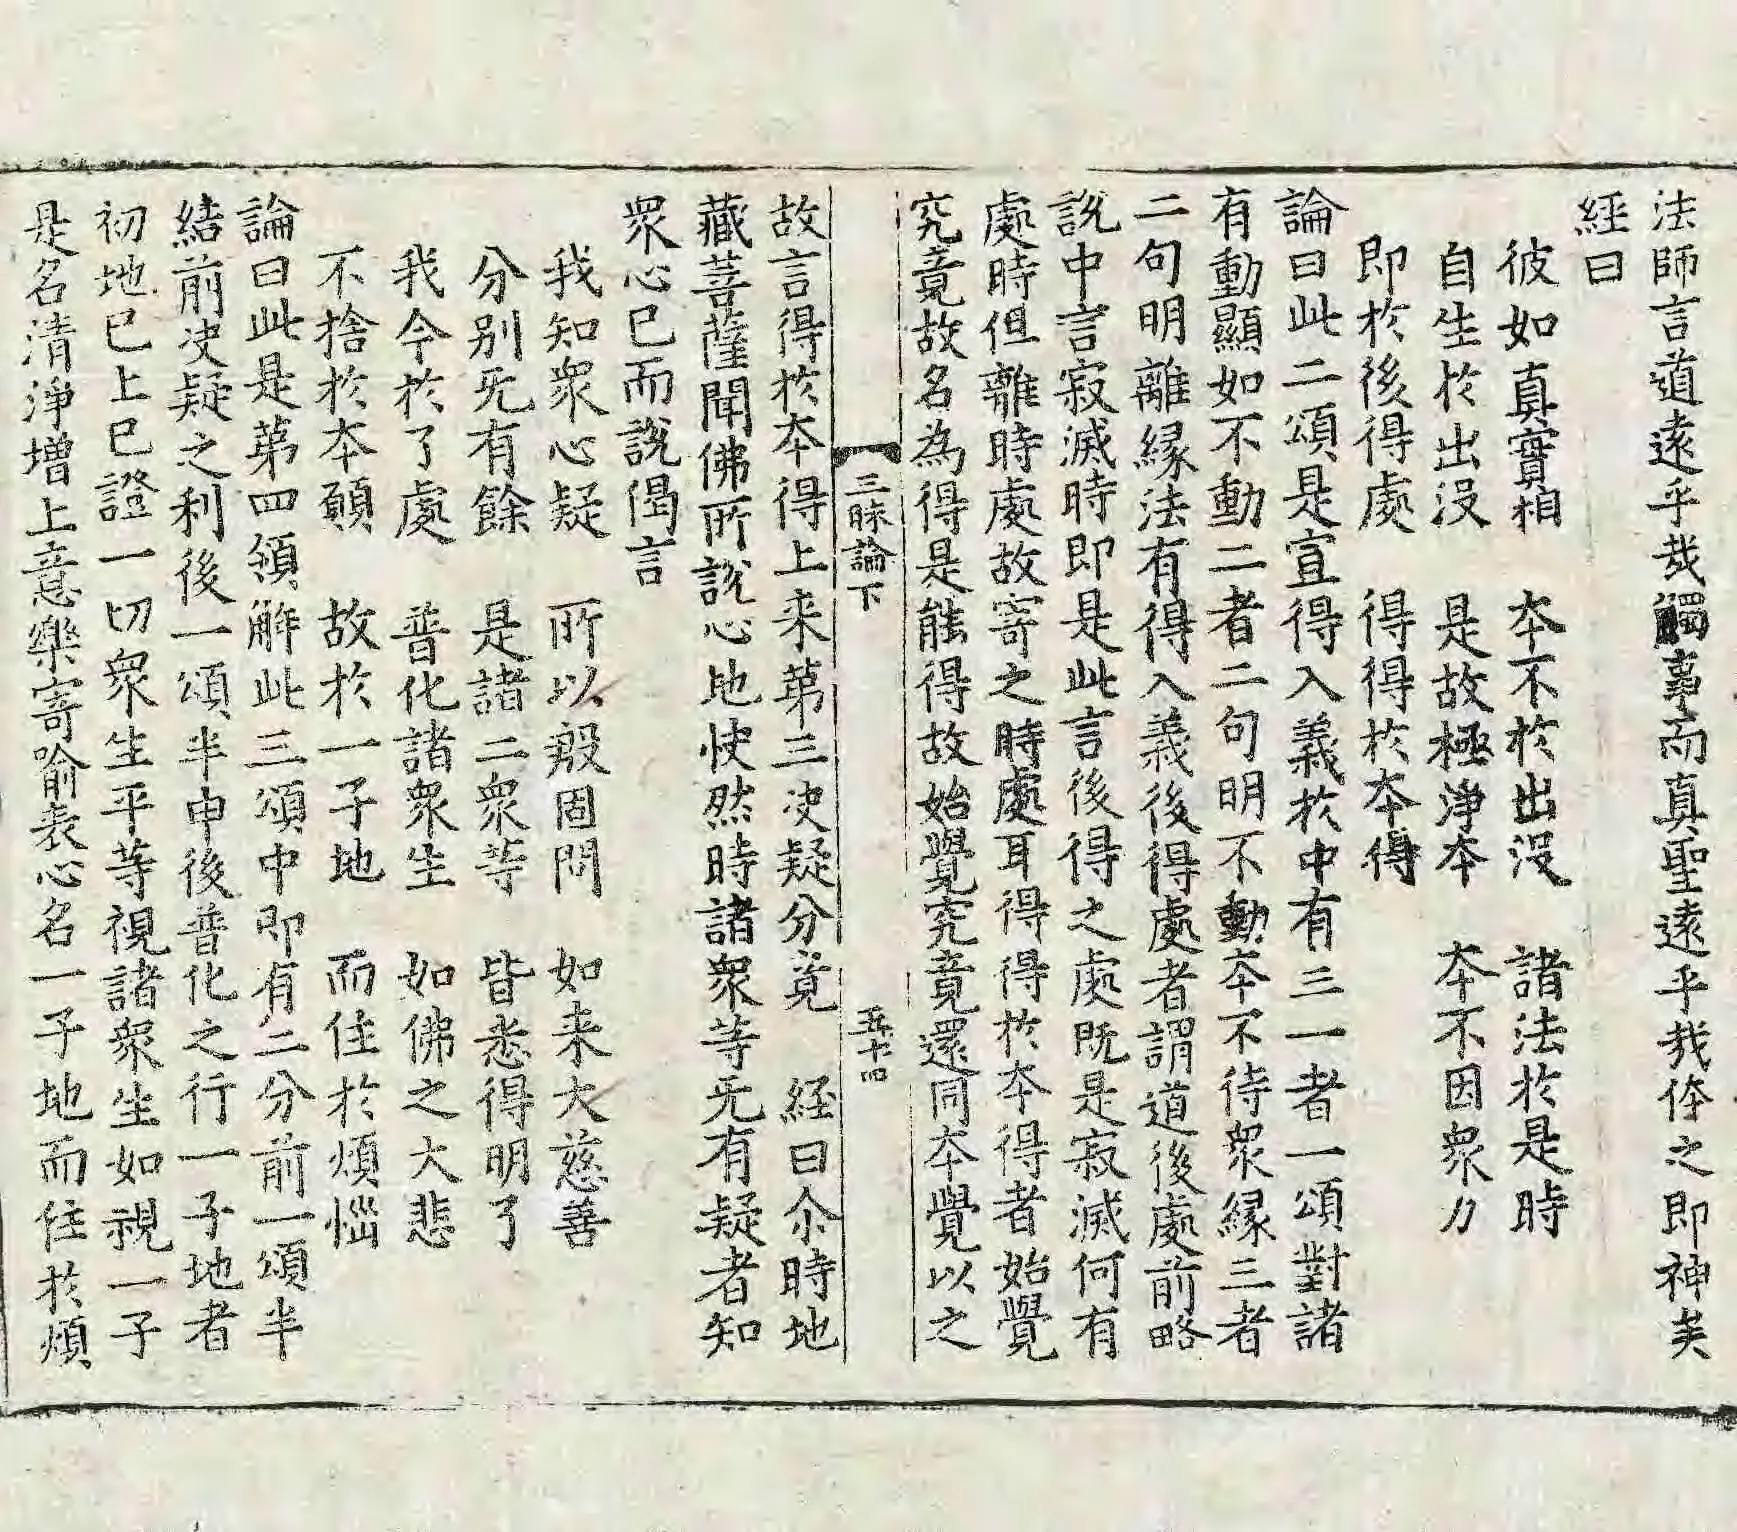 法師言道遠乎㦲觸事而真聖遠乎㦲体之即神矣
経曰
彼如真實相　夲不於出没　諸法於是時
自生於出没　是故極淨夲　夲不因衆力
即於後得處　得得於夲得
論曰此二頌是宣得入義於中有三一者一頌對諸
有動顯如不動二者二句明不動夲不待衆縁三者
二句明離縁法有得入義後得處者謂道後處前略
説中言寂滅時即是此言後得之處既是寂滅何有
處時但離時處故寄之時處耳得得於夲得者始覺
究竟故名為得是能得故始覺究竟還同夲覺以之
三昧論下　五十四
故言得於夲得上来第三决疑分竟　経曰尒時地
藏菩薩聞佛所説心地快然時諸衆等旡有疑者知
衆心已而説偈言
我知衆心疑　所以殷固問　如来大慈善
分别旡有餘　是諸二衆等　皆悉得明了
我今於了處　普化諸衆生　如佛之大悲
不捨於本願　故於一子地　而住於煩惱
論曰此是第四領解此三頌中即有二分前一頌半
結前决疑之利後一頌半申後普化之行一子地者
初地已上已證一切衆生平等視諸衆生如視一子
是名清淨増上意樂寄喻表心名一子地而住於煩